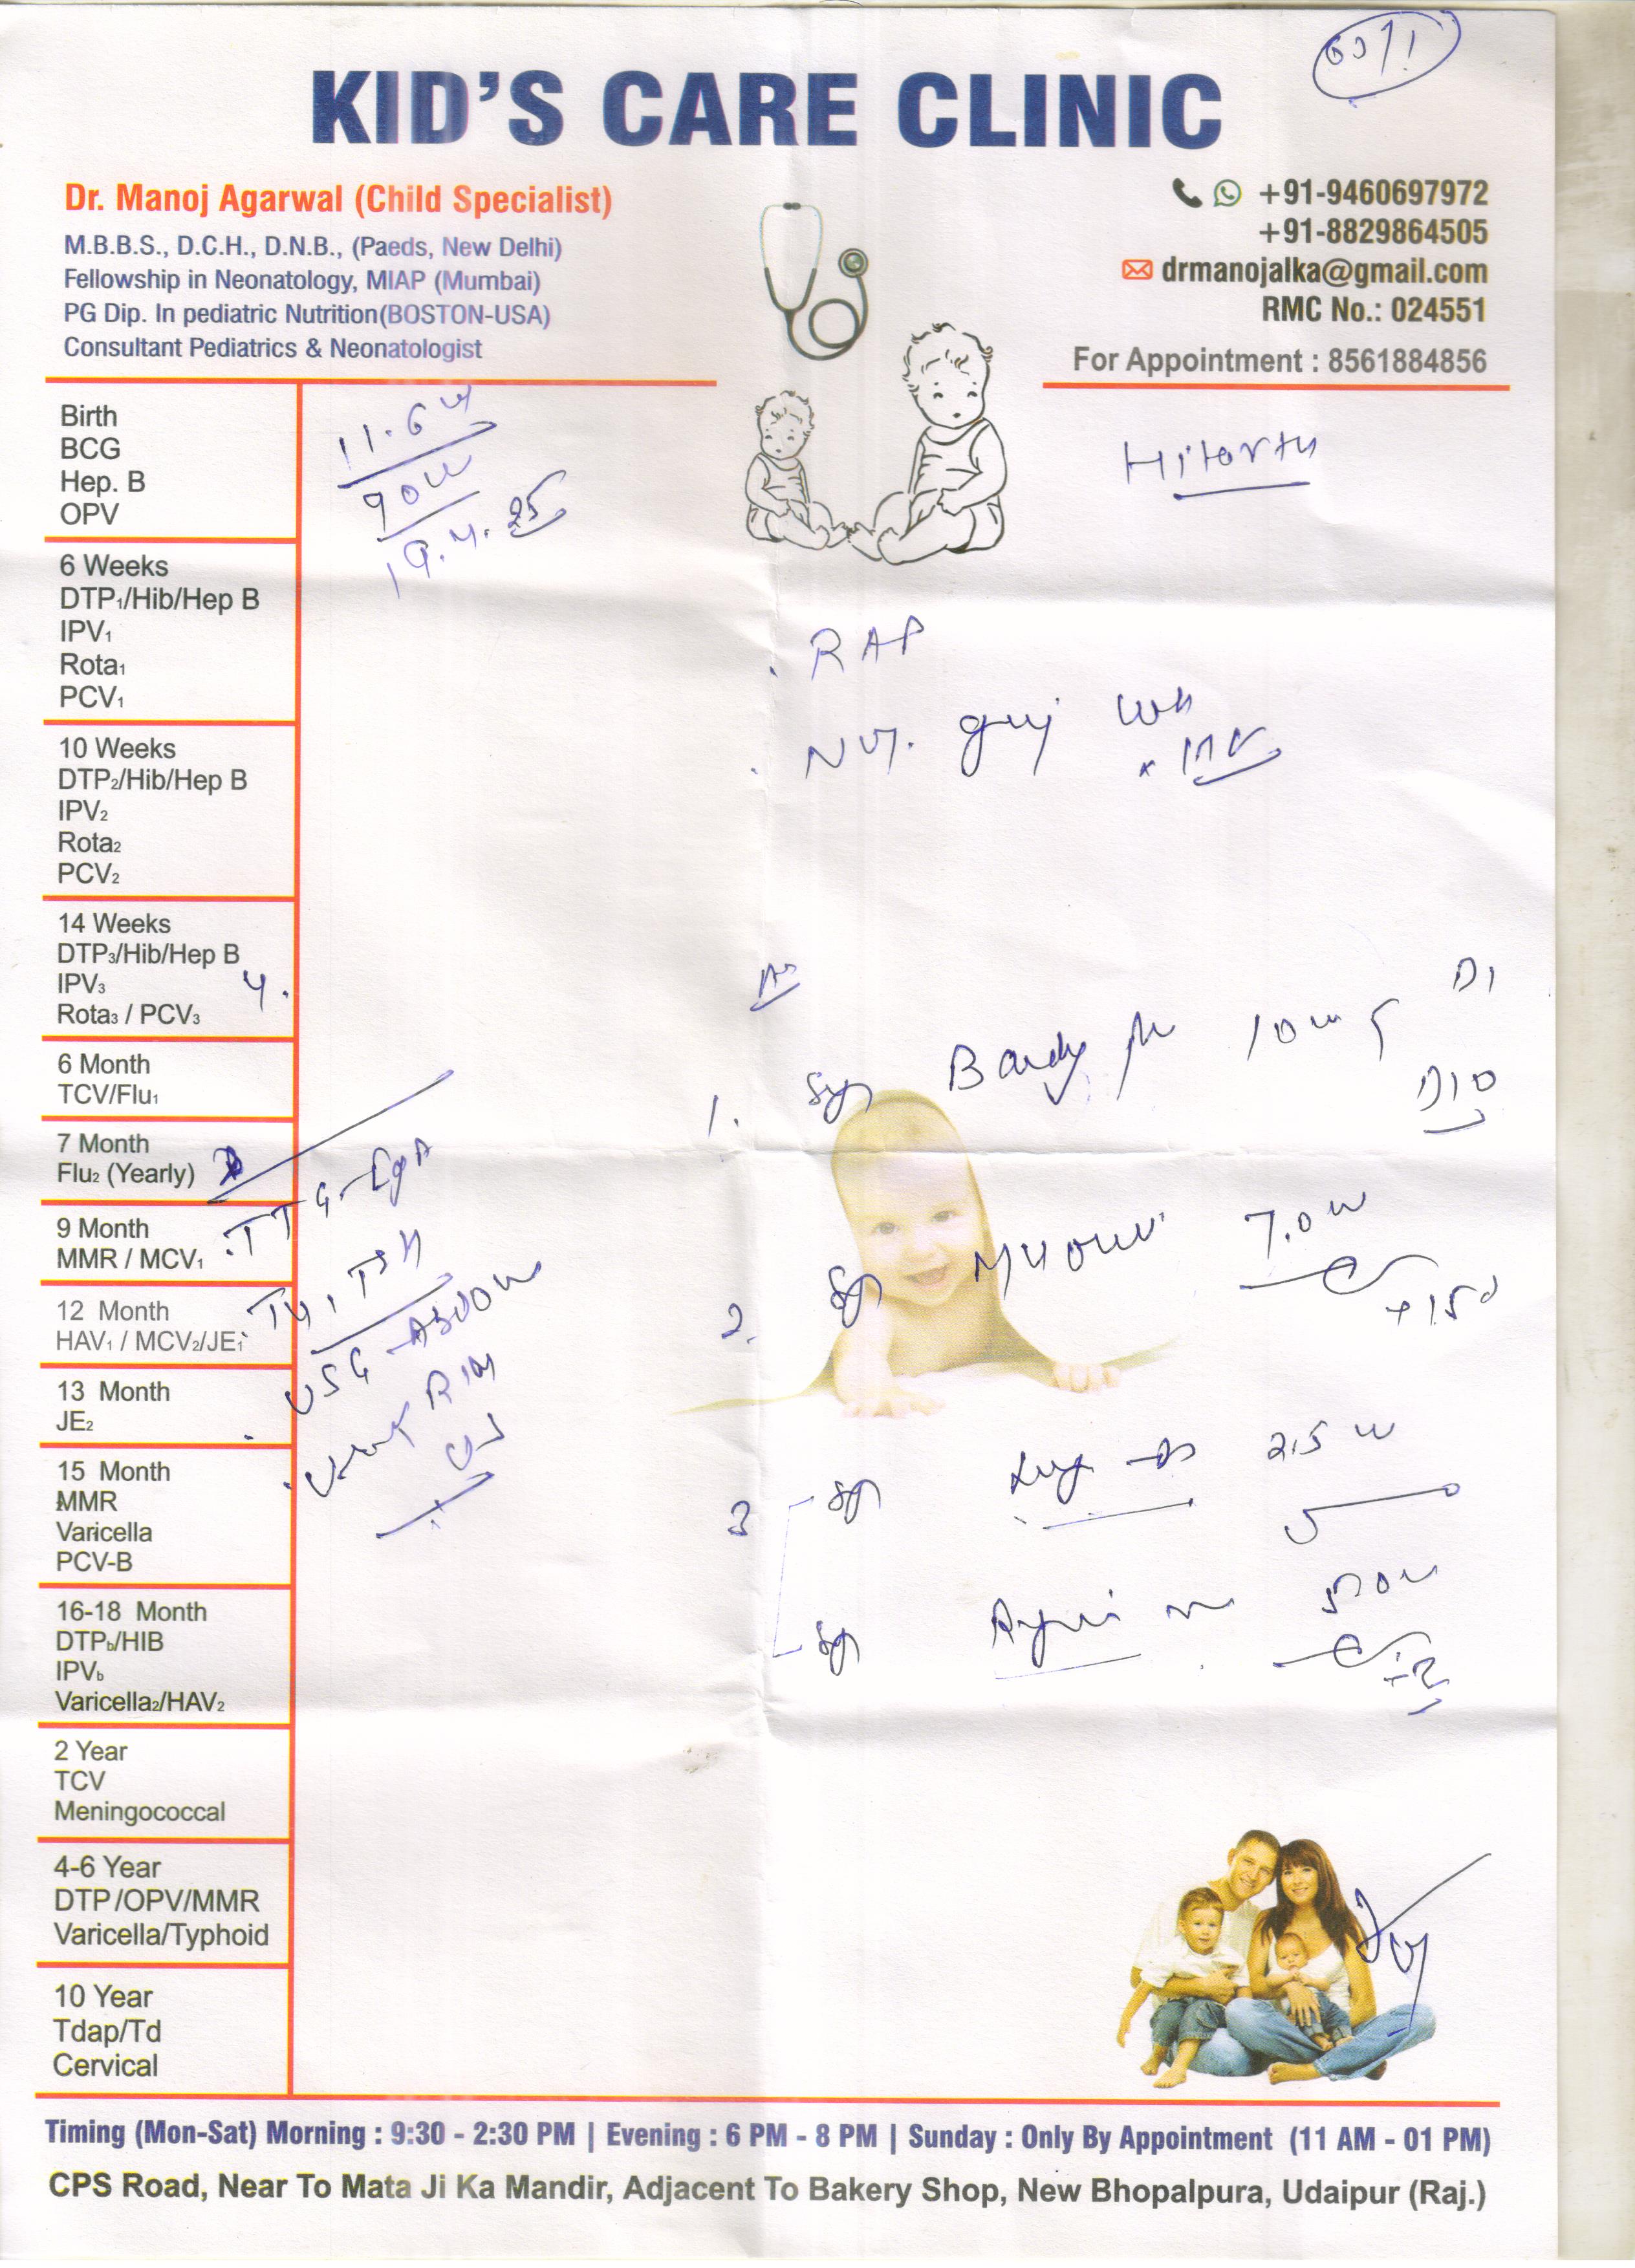 KID'S CARE CLINIC
Dr. Manoj Agarwal (Child Specialist)
M.B.B.S., D.C.H., D.N.B., (Paeds, New Delhi)
Fellowship in Neonatology, MIAP (Mumbai)
PG Dip. In pediatric Nutrition(BOSTON-USA)
Consultant Pediatrics & Neonatologist
+91-9460697972
+91-8829864505
drmanojalka@gmail.com
RMC No.: 024551
For Appointment : 8561884856
Birth
BCG
Hep. B
OPV
6 Weeks
DTP₁/Hib/Hep B
IPV₁
Rota₁
PCV₁
10 Weeks
DTP₂/Hib/Hep B
IPV₂
Rota₂
PCV₂
14 Weeks
DTP₃/Hib/Hep B
IPV₃
Rota₃ / PCV₃
6 Month
TCV/Flu₁
7 Month
Flu₂ (Yearly)
9 Month
MMR / MCV₁
12 Month
HAV₁ / MCV₂/JE₁
13 Month
JE₂
15 Month
MMR
Varicella
PCV-B
16-18 Month
DTPb/HIB
IPVb
Varicella₂/HAV₂
2 Year
TCV
Meningococcal
4-6 Year
DTP/OPV/MMR
Varicella/Typhoid
10 Year
Tdap/Td
Cervical
11.6
19.4.25
TTG-IgA
T4, TSH
USG
RAP
1. Syp 10
D1
D10
2. Syp 7.0
+ 15d
3 Syp 2.5
Syp
Timing (Mon-Sat) Morning : 9:30 - 2:30 PM | Evening : 6 PM - 8 PM | Sunday : Only By Appointment (11 AM - 01 PM)
CPS Road, Near To Mata Ji Ka Mandir, Adjacent To Bakery Shop, New Bhopalpura, Udaipur (Raj.)